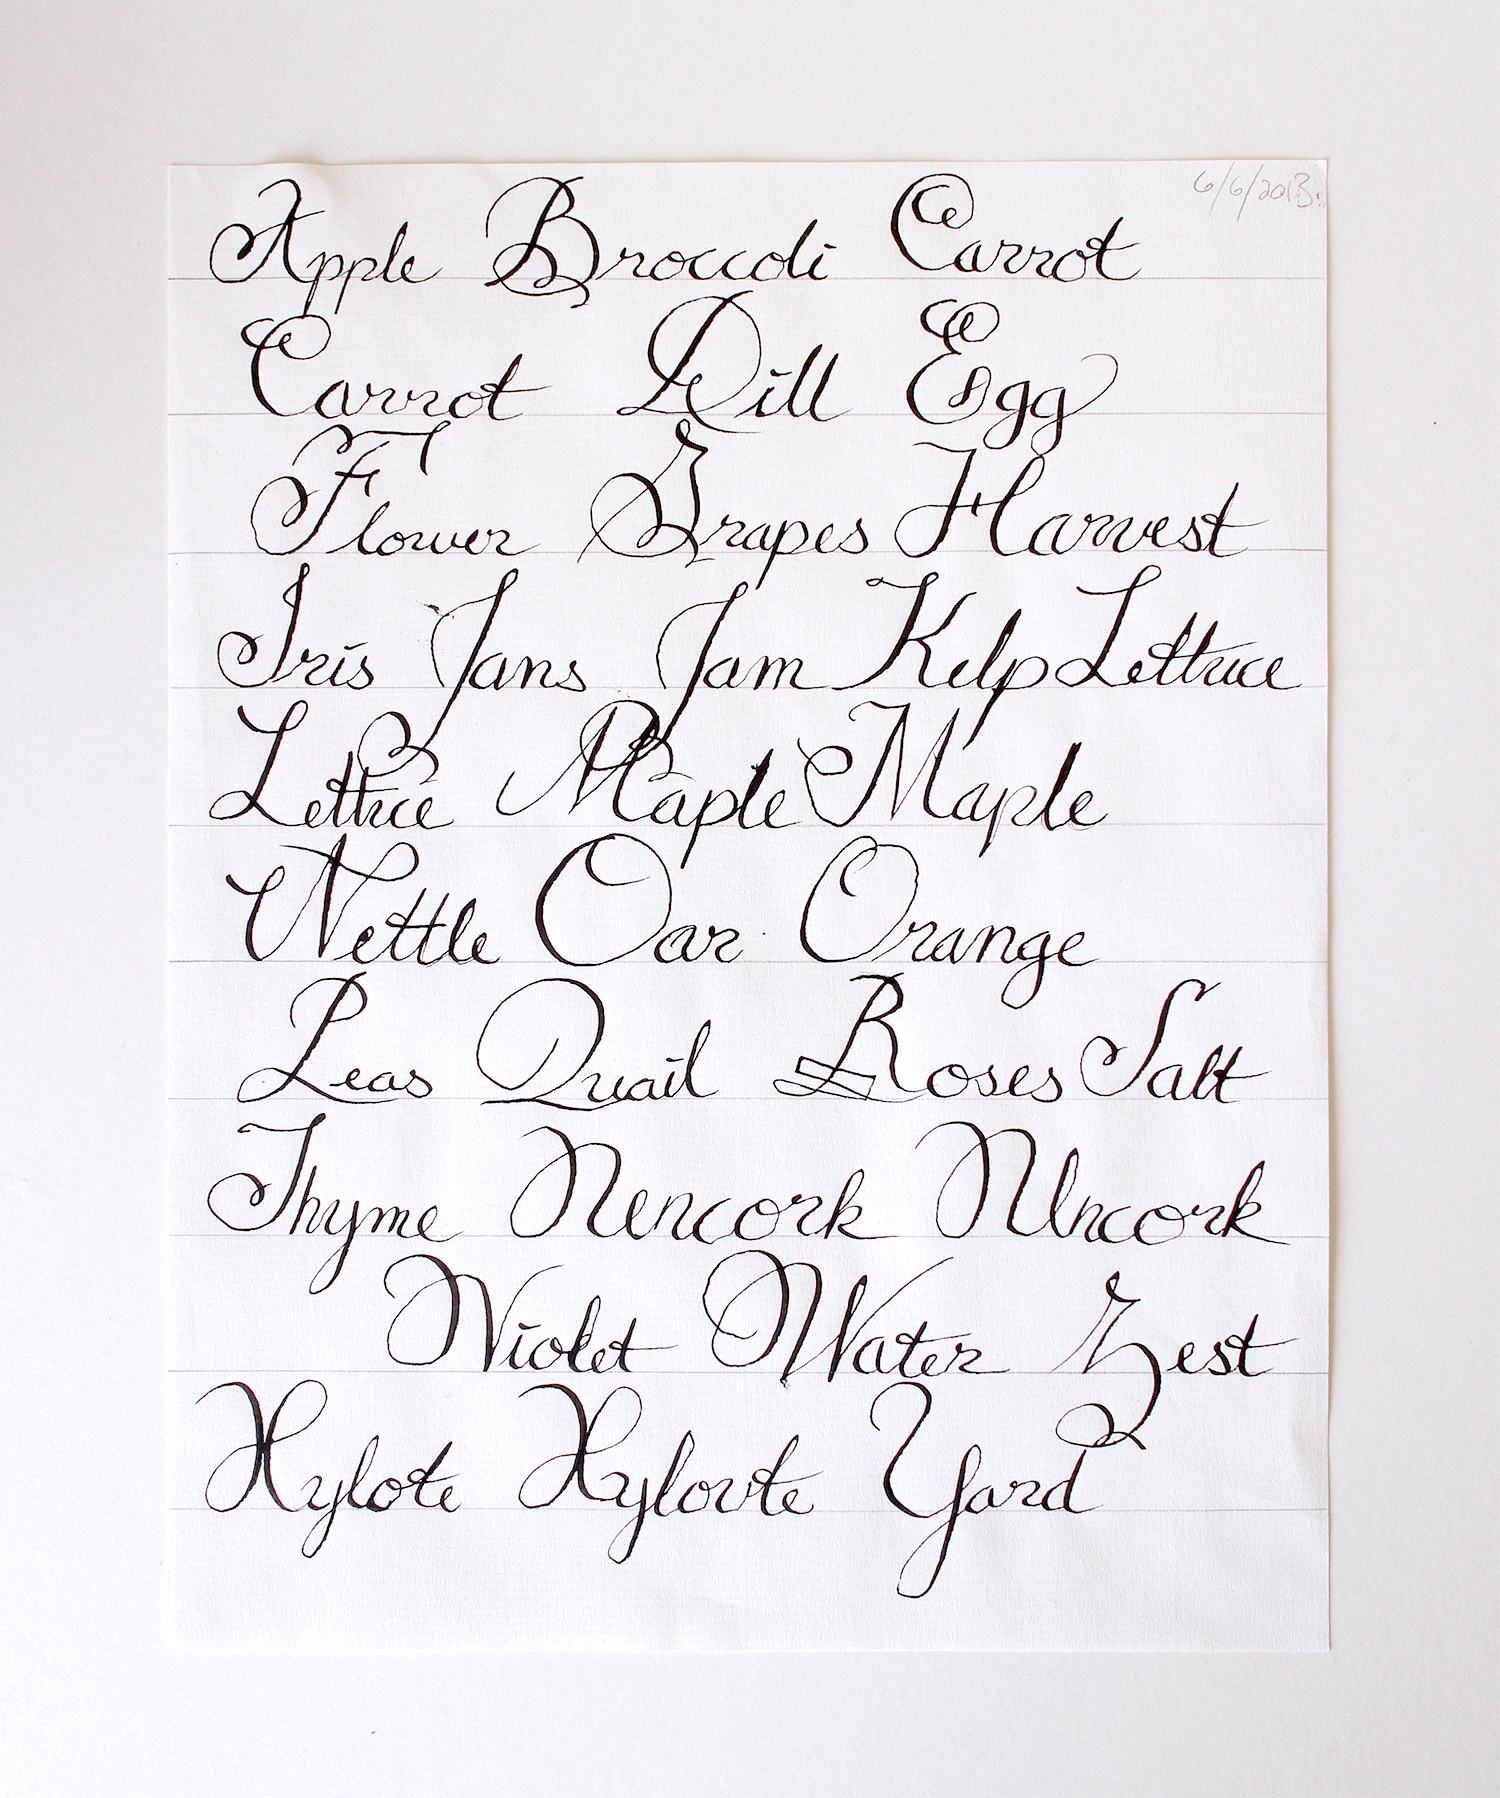 6/6/2013
Apple Broccoli Carrot
Carrot Dill Egg
Flower Grapes Harvest
Iris Jans Jam Kelp Lettuce
Lettuce Maple Maple
Nettle Oar Orange
Peas Quail Roses Salt
Thyme
Violet Water Zest
Yard